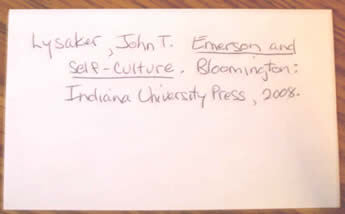 Lysaker, John T. Emerson and
Self-Culture. Bloomington:
Indiana University Press, 2008.